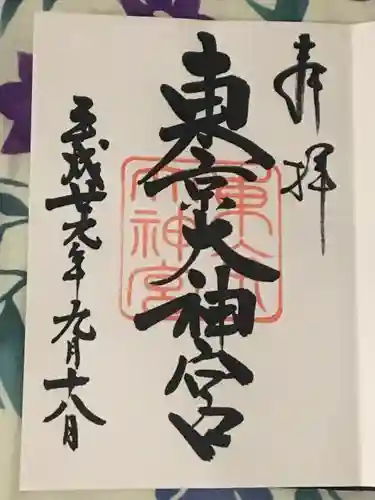 奉拝
東京大神宮
東京大神宮
平成廿九年九月十八日